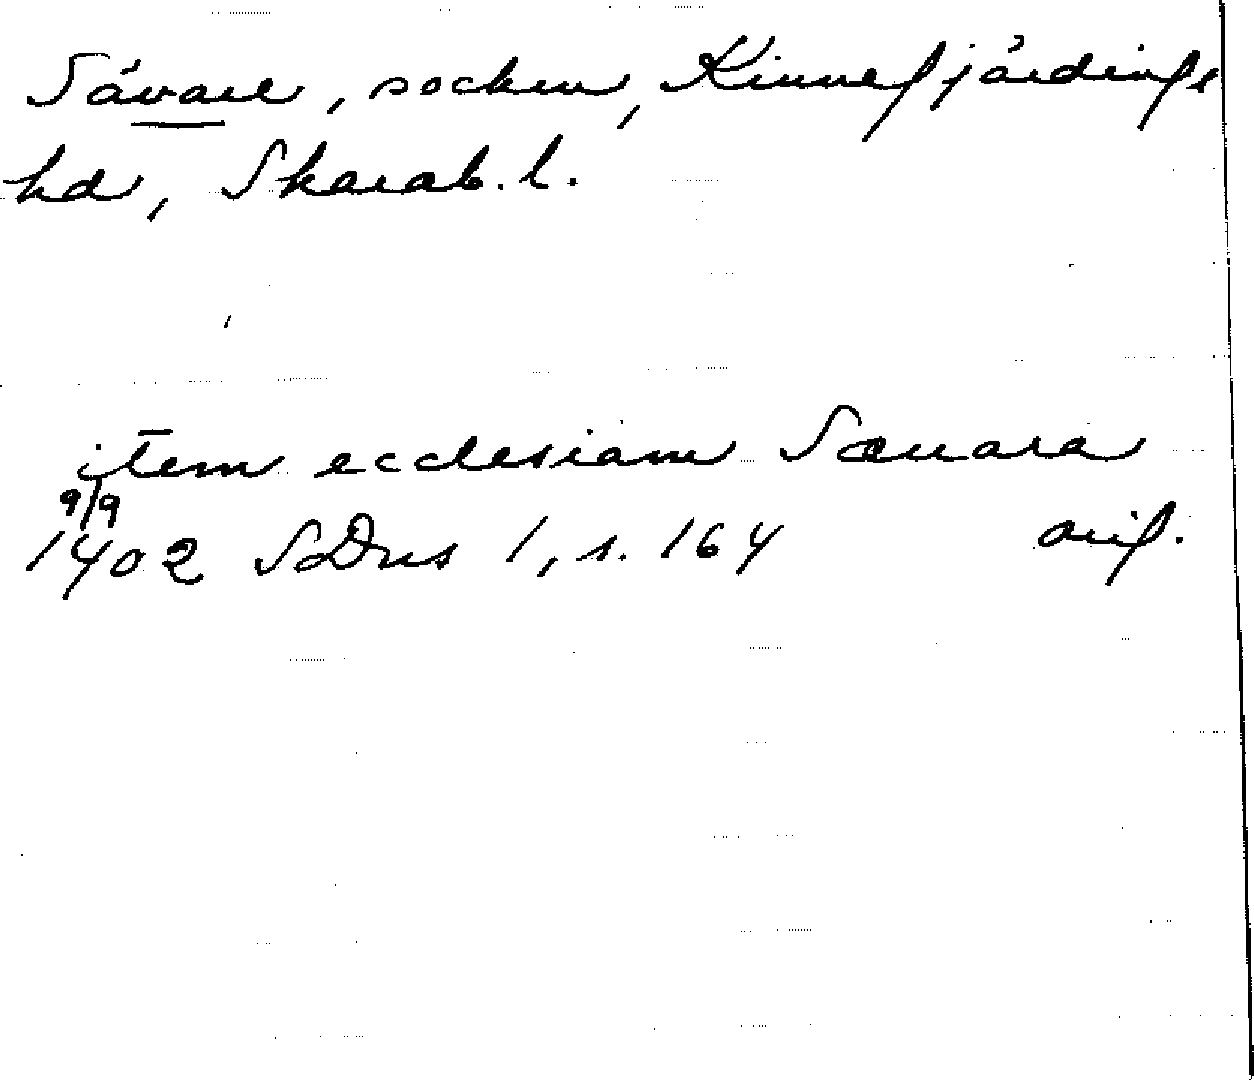 Sävare, socken, Kinnefjärdings
hd, Skarab. l.
item ecclesiam Sæuara
9/9
1402 SDns 1, s. 164 orig.